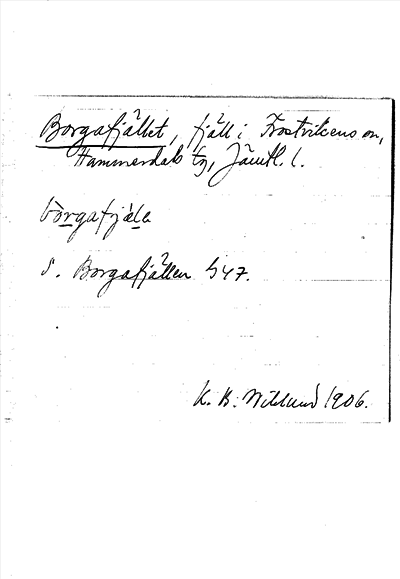 Borgafjället, fjäll i Frostvikens sn,
Hammerdals tg, Jämtl. l.
bòrgafjäla
S. Borgafjällen G 47.
K. B. Wiklund 1906.